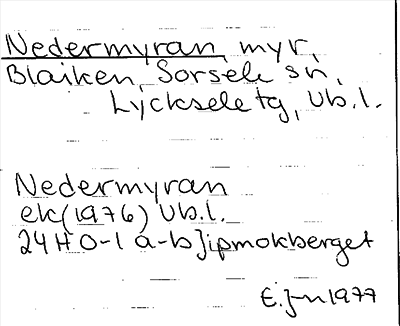 Nedermyran, myr,
Blaiken, Sorsele sn,
Lycksele tg, Vb.l.
Nedermyran
ek(1976) Vb.l.
24H 0-1 a-b Jipmokberget
E. J-n 1977